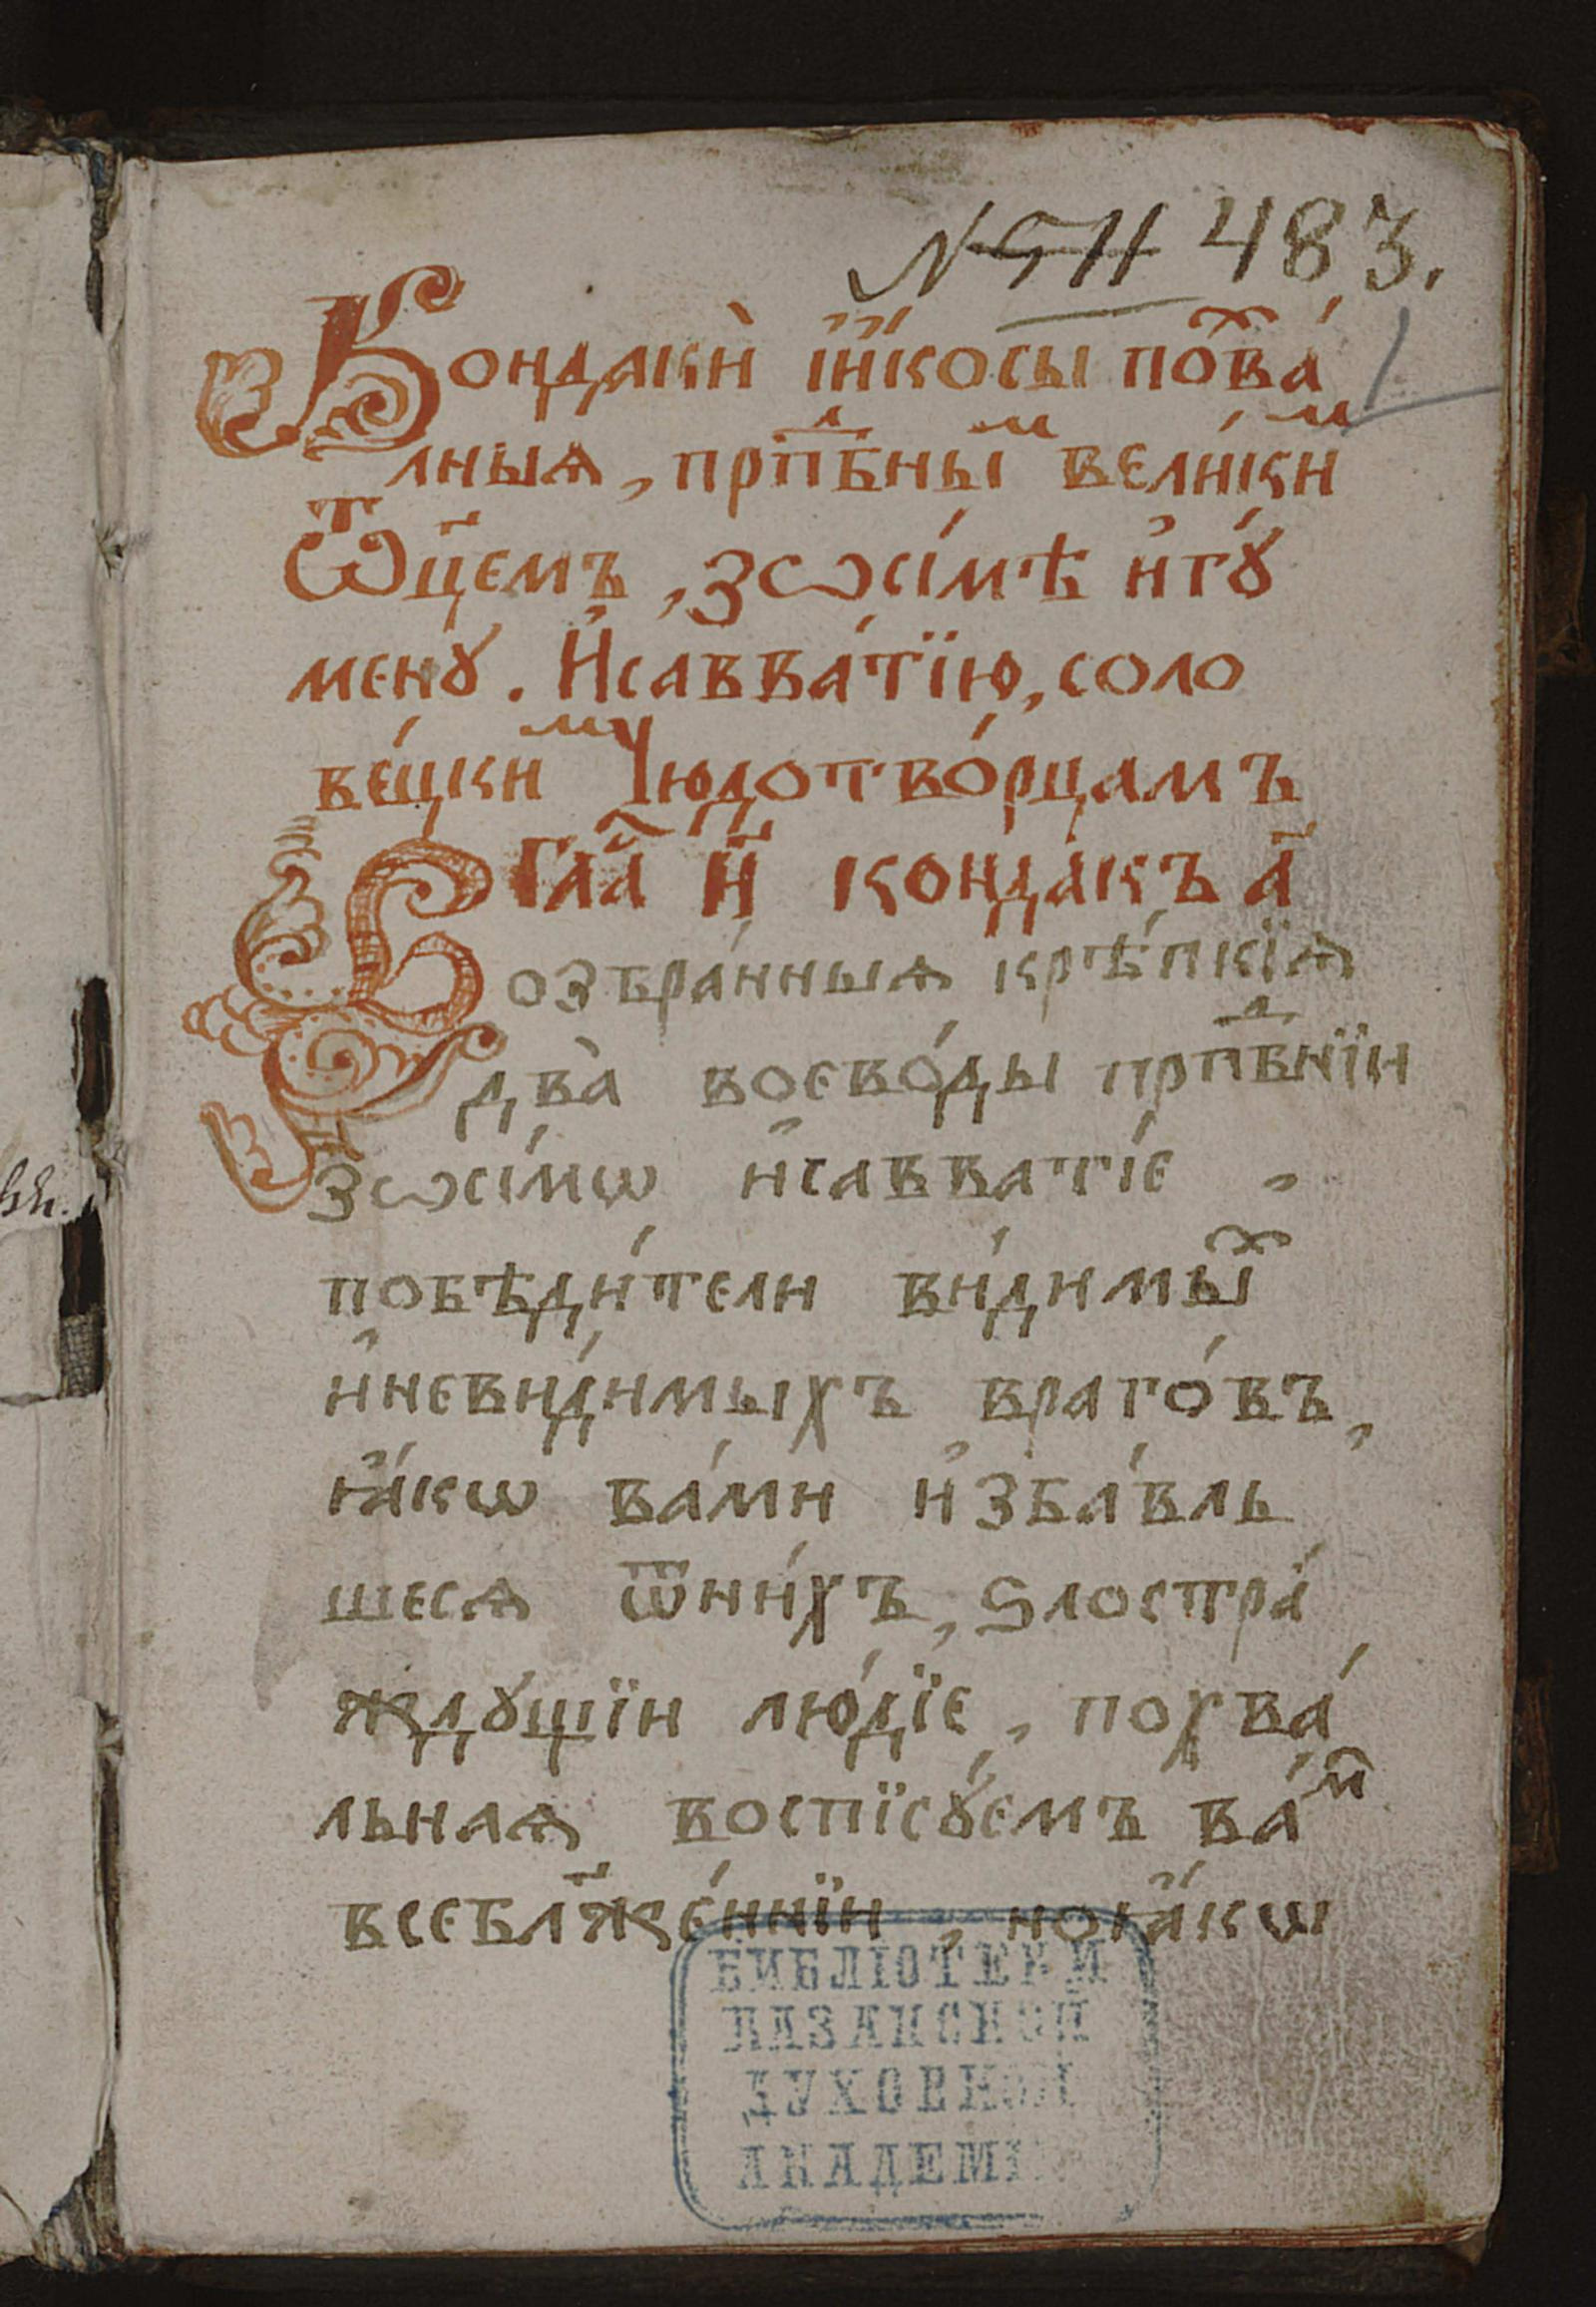 № 511 483.
Кондаки̇̀ и҆і҆́косы по́ⷯва́
лныѧ, прпⷣбныⷨ вели́киⷨ
Ѿц҃емъ, зѡсі́мѣ и҆гꙋ́
менꙋ. И҆савва́тїю, соло
ве́цкиⷨ Чюдотво́рцамъ
Гла҃ и҃ конда́къ а҃
Возбра́нныѧ крѣ́пкїѧ
два̀ воево́ды прпⷣбнїи
зѡсі́мѡ и҆савваті́е,
побѣди́тели ви́димыⷯ
и҆неви́димыхъ враго́въ,
ꙗ҆́кѡ ва́ми и҆зба́вль
шесѧ ѿни́хъ, ѕлостра́
ждꙋщїи лю́дїе, похва́
льнаѧ воспїсꙋ́емъ ва́ⷨ
всебл҃же́ннїи, ноꙗ҆́кѡ
БИБЛІОТЕКИ
КАЗАНСКОЙ
ДУХОВНОЙ
АКАДЕМІИ